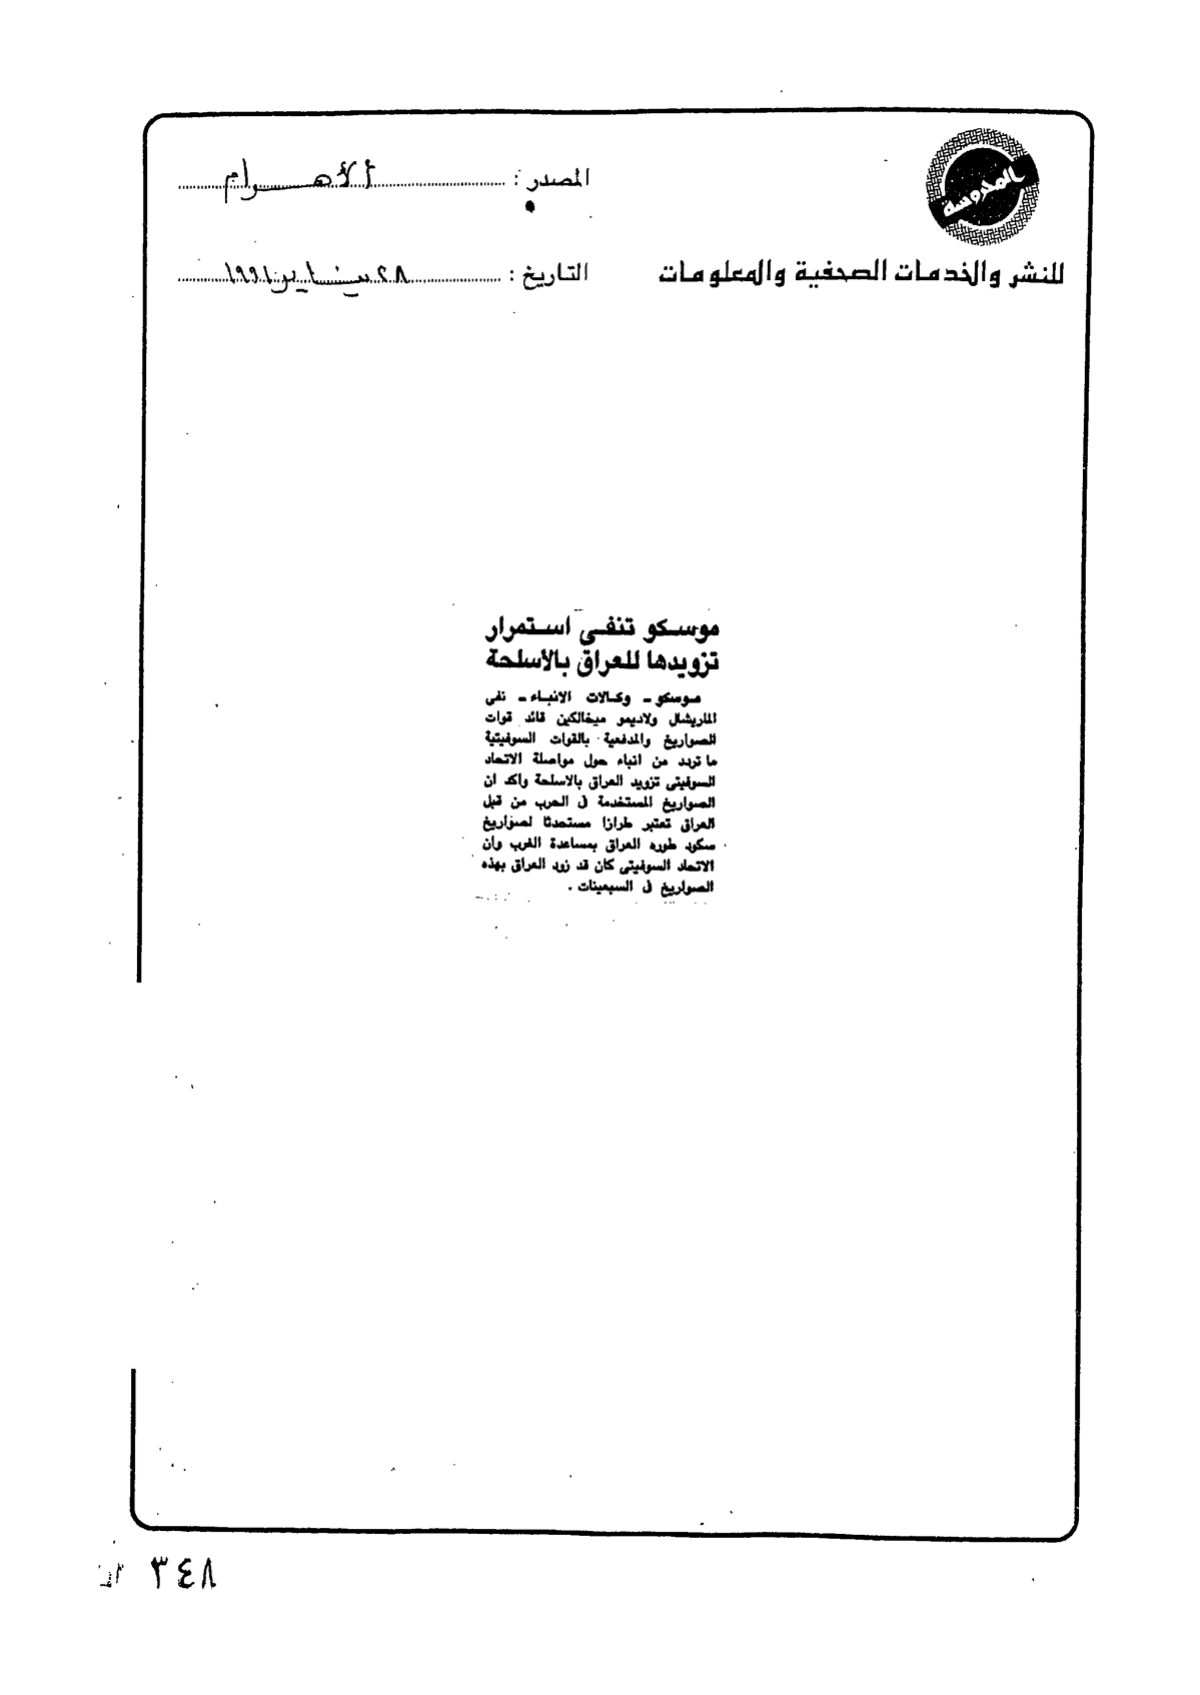 المحروسة
المصدر : الأهرام
للنشر والخدمات الصحفية والمعلومات
التاريخ : ٢٨ يناير ١٩٩١
موسكو تنفى استمرار
تزويدها للعراق بالأسلحة
موسكو ـ وكالات الانباء ـ نفى
الماريشال ولاديمو ميخالكين قائد قوات
الصواريخ والمدفعية بالقوات السوفيتية
ما تردد من انباء حول مواصلة الاتحاد
السوفيتى تزويد العراق بالاسلحة واكد ان
الصواريخ المستخدمة فى الحرب من قبل
العراق تعتبر طرازا مستحدثا لصواريخ
سكود طوره العراق بمساعدة الغرب وأن
الاتحاد السوفيتى كان قد زود العراق بهذه
الصواريخ فى السبعينات .
٣٤٨